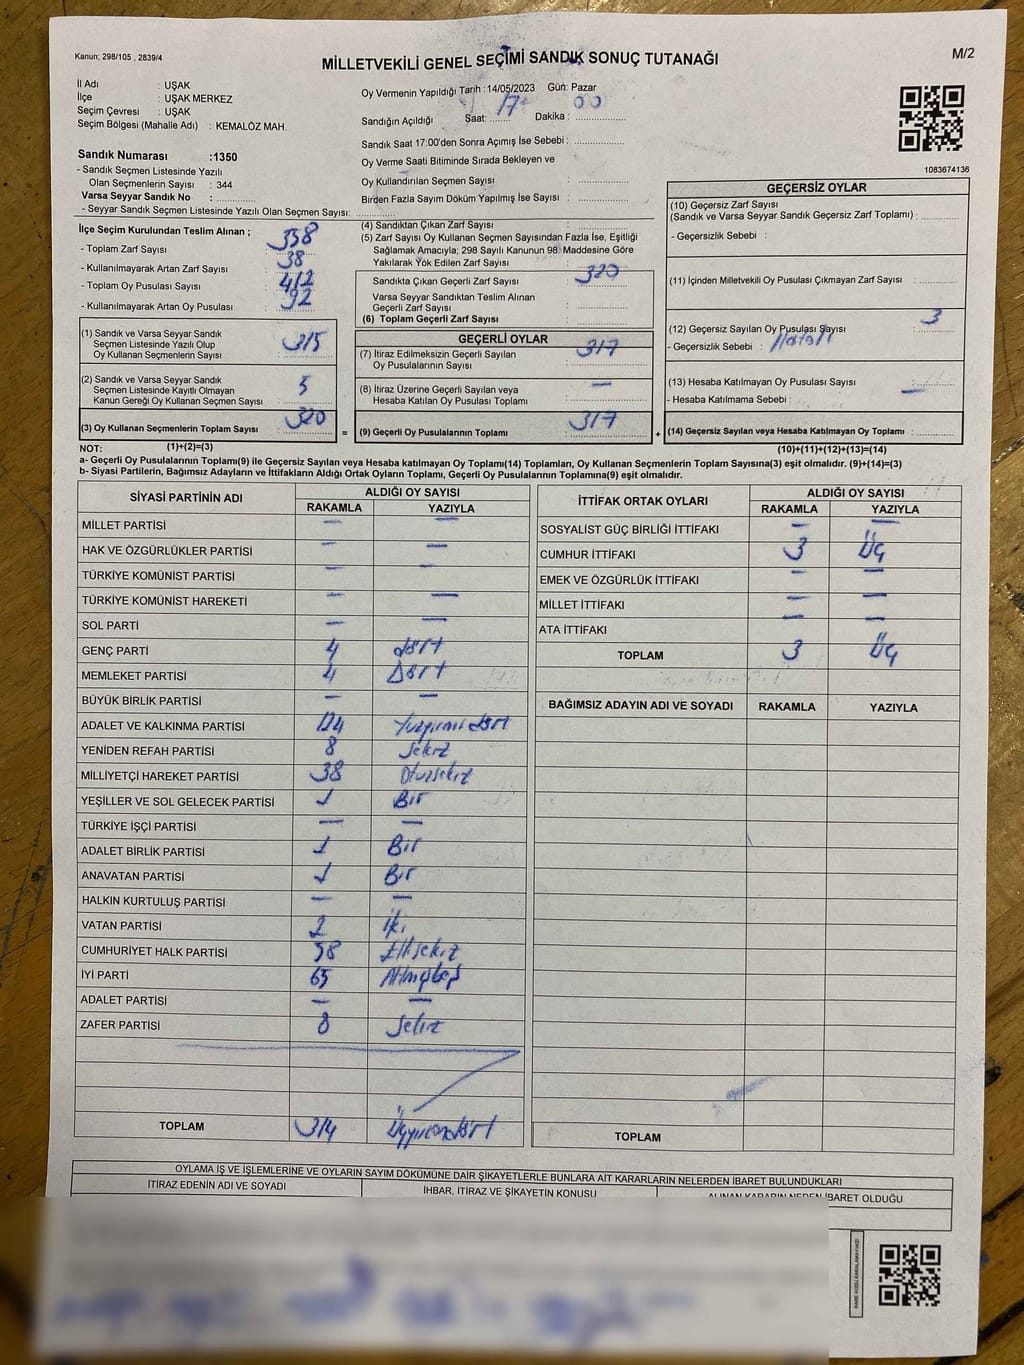 Kanun; 298/105 , 2839/4
MİLLETVEKİLİ GENEL SEÇİMİ SANDIK SONUÇ TUTANAĞI
M/2
İl Adı : UŞAK
İlçe : UŞAK MERKEZ
Seçim Çevresi : UŞAK
Seçim Bölgesi (Mahalle Adı) : KEMALÖZ MAH.
Oy Vermenin Yapıldığı Tarih : 14/05/2023 Gün: Pazar
Sandığın Açıldığı Saat: 17 Dakika : 00
Sandık Saat 17:00'den Sonra Açımış İse Sebebi :
Oy Verme Saati Bitiminde Sırada Bekleyen ve
Oy Kullandırılan Seçmen Sayısı :
Birden Fazla Sayım Döküm Yapılmış İse Sayısı :
1083674136
Sandık Numarası :1350
- Sandık Seçmen Listesinde Yazılı
Olan Seçmenlerin Sayısı : 344
Varsa Seyyar Sandık No :
- Seyyar Sandık Seçmen Listesinde Yazılı Olan Seçmen Sayısı:
İlçe Seçim Kurulundan Teslim Alınan ;
- Toplam Zarf Sayısı : 358
- Kullanılmayarak Artan Zarf Sayısı : 38
- Toplam Oy Pusulası Sayısı : 412
- Kullanılmayarak Artan Oy Pusulası : 92
(1) Sandık ve Varsa Seyyar Sandık
Seçmen Listesinde Yazılı Olup
Oy Kullanan Seçmenlerin Sayısı : 315
(2) Sandık ve Varsa Seyyar Sandık
Seçmen Listesinde Kayıtlı Olmayan
Kanun Gereği Oy Kullanan Seçmen Sayısı : 5
(3) Oy Kullanan Seçmenlerin Toplam Sayısı : 320
(4) Sandıktan Çıkan Zarf Sayısı :
(5) Zarf Sayısı Oy Kullanan Seçmen Sayısından Fazla İse, Eşitliği
Sağlamak Amacıyla; 298 Sayılı Kanunun 98. Maddesine Göre
Yakılarak Yok Edilen Zarf Sayısı :
Sandıkta Çıkan Geçerli Zarf Sayısı : 320
Varsa Seyyar Sandıktan Teslim Alınan
Geçerli Zarf Sayısı :
(6) Toplam Geçerli Zarf Sayısı :
GEÇERLİ OYLAR
(7) İtiraz Edilmeksizin Geçerli Sayılan
Oy Pusulalarının Sayısı : 317
(8) İtiraz Üzerine Geçerli Sayılan veya
Hesaba Katılan Oy Pusulası Toplamı : —
= (9) Geçerli Oy Pusulalarının Toplamı : 317
GEÇERSİZ OYLAR
(10) Geçersiz Zarf Sayısı
(Sandık ve Varsa Seyyar Sandık Geçersiz Zarf Toplamı) :
- Geçersizlik Sebebi :
(11) İçinden Milletvekili Oy Pusulası Çıkmayan Zarf Sayısı :
(12) Geçersiz Sayılan Oy Pusulası Sayısı : 3
- Geçersizlik Sebebi : Hatalı
(13) Hesaba Katılmayan Oy Pusulası Sayısı :
- Hesaba Katılmama Sebebi : —
+ (14) Geçersiz Sayılan veya Hesaba Katılmayan Oy Toplamı :
NOT: (1)+(2)=(3)
(10)+(11)+(12)+(13)=(14)
a- Geçerli Oy Pusulalarının Toplamı(9) ile Geçersiz Sayılan veya Hesaba katılmayan Oy Toplamı(14) Toplamları, Oy Kullanan Seçmenlerin Toplam Sayısına(3) eşit olmalıdır. (9)+(14)=(3)
b- Siyasi Partilerin, Bağımsız Adayların ve İttifakların Aldığı Ortak Oyların Toplamı, Geçerli Oy Pusulalarının Toplamına(9) eşit olmalıdır.
SİYASİ PARTİNİN ADI ALDIĞI OY SAYISI
RAKAMLA YAZIYLA
MİLLET PARTİSİ — —
HAK VE ÖZGÜRLÜKLER PARTİSİ — —
TÜRKİYE KOMÜNİST PARTİSİ — —
TÜRKİYE KOMÜNİST HAREKETİ — —
SOL PARTİ — —
GENÇ PARTİ 4 dört
MEMLEKET PARTİSİ 4 Dört
BÜYÜK BİRLİK PARTİSİ — —
ADALET VE KALKINMA PARTİSİ 124 Yüzyirmi dört
YENİDEN REFAH PARTİSİ 8 Sekiz
MİLLİYETÇİ HAREKET PARTİSİ 38 Otuzsekiz
YEŞİLLER VE SOL GELECEK PARTİSİ 1 Bir
TÜRKİYE İŞÇİ PARTİSİ — —
ADALET BİRLİK PARTİSİ 1 Bir
ANAVATAN PARTİSİ 1 Bir
HALKIN KURTULUŞ PARTİSİ — —
VATAN PARTİSİ 2 iki
CUMHURİYET HALK PARTİSİ 58 Ellisekiz
İYİ PARTİ 65 Altmışbeş
ADALET PARTİSİ — —
ZAFER PARTİSİ 8 Sekiz
TOPLAM 314 Üçyüzondört
İTTİFAK ORTAK OYLARI ALDIĞI OY SAYISI
RAKAMLA YAZIYLA
SOSYALİST GÜÇ BİRLİĞİ İTTİFAKI — —
CUMHUR İTTİFAKI 3 Üç
EMEK VE ÖZGÜRLÜK İTTİFAKI — —
MİLLET İTTİFAKI — —
ATA İTTİFAKI — —
TOPLAM 3 Üç
BAĞIMSIZ ADAYIN ADI VE SOYADI RAKAMLA YAZIYLA
TOPLAM
OYLAMA İŞ VE İŞLEMLERİNE VE OYLARIN SAYIM DÖKÜMÜNE DAİR ŞİKAYETLERLE BUNLARA AİT KARARLARIN NELERDEN İBARET BULUNDUKLARI
İTİRAZ EDENİN ADI VE SOYADI İHBAR, İTİRAZ VE ŞİKAYETİN KONUSU ALINAN KARARIN NEDEN İBARET OLDUĞU